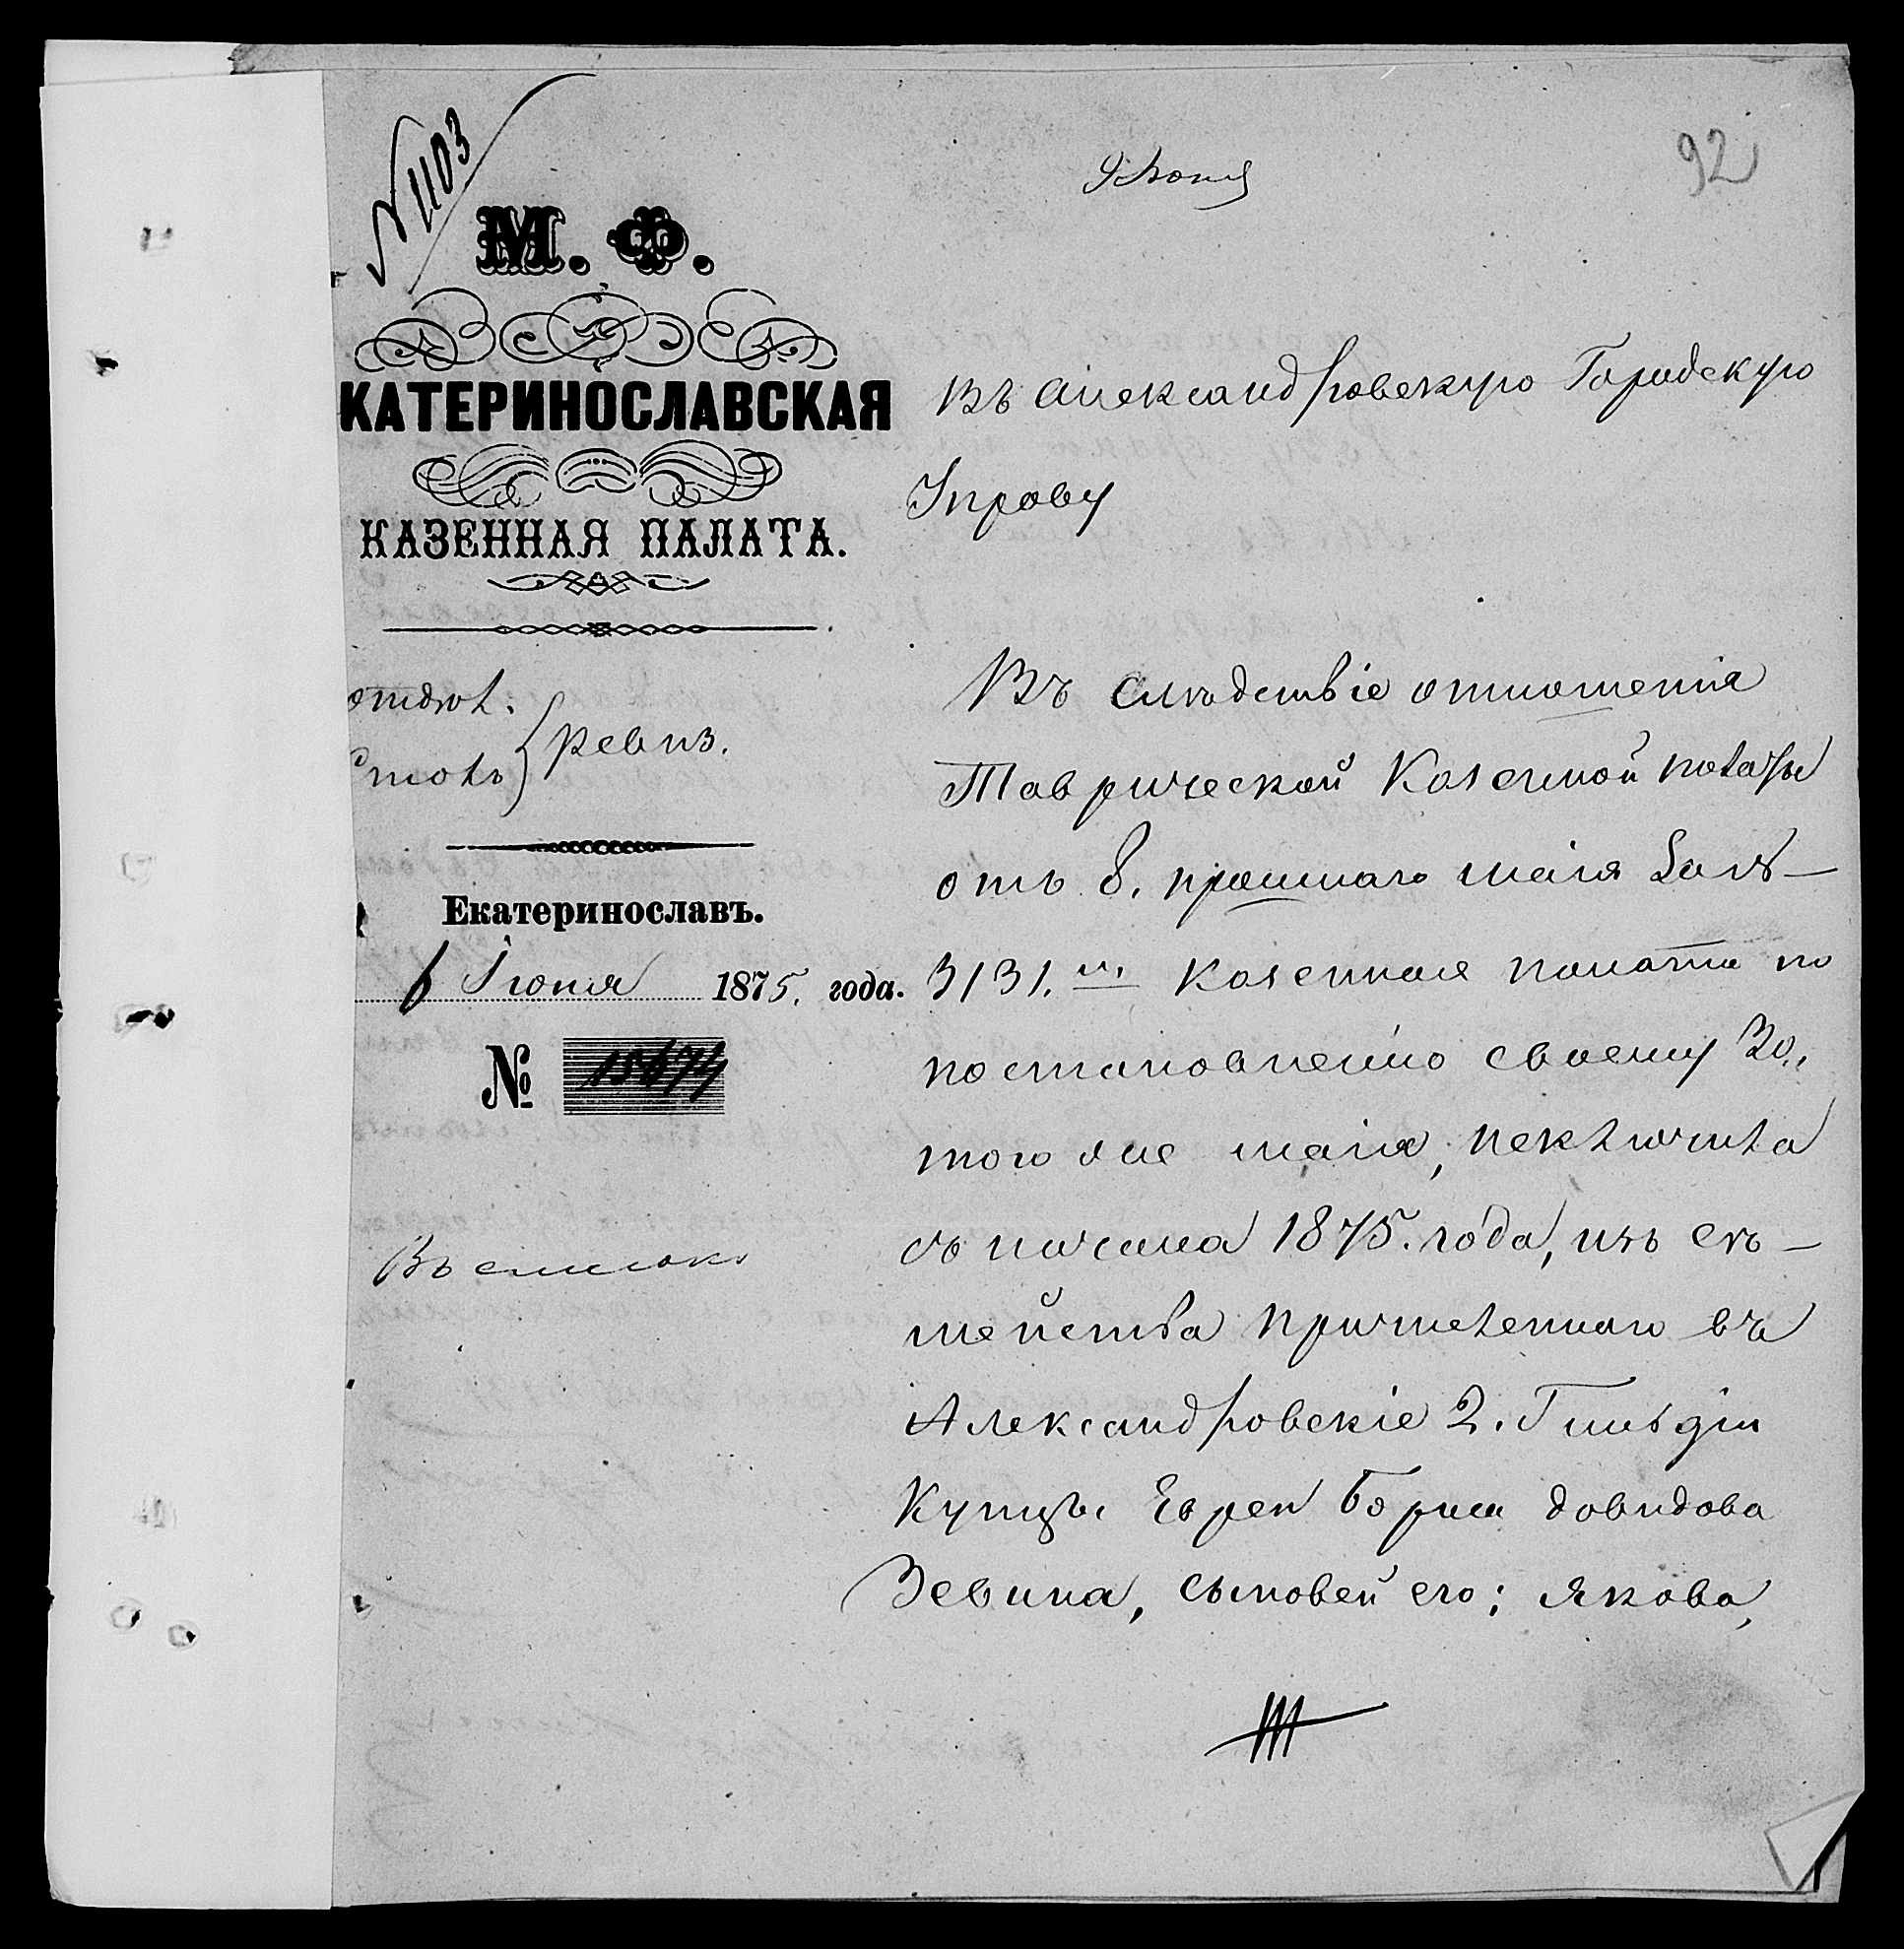 № 1103
9 Июня
92
М. Ф.
КАТЕРИНОСЛАВСКАЯ
КАЗЕННАЯ ПАЛАТА.
Въ Александровскую Городскую
Управу
отдѣл.
столъ
Ревиз.
Екатеринославъ.
6 Іюня 1875. года.
№ 15674
Въ списокъ
Въ слѣдствіе отношенія
Таврической Казенной палаты
отъ 8. прошлаго маія за №
3131.м. Казенная палата по
постановленію своему 20.,
того же маія, исключила
съ начала 1875. года, изъ се-
мейства причисленнаго въ
Александровскіе 2. Гильдіи
Купцы Еврея Бориса Давидова
Зевина, сыновей его: Якова,